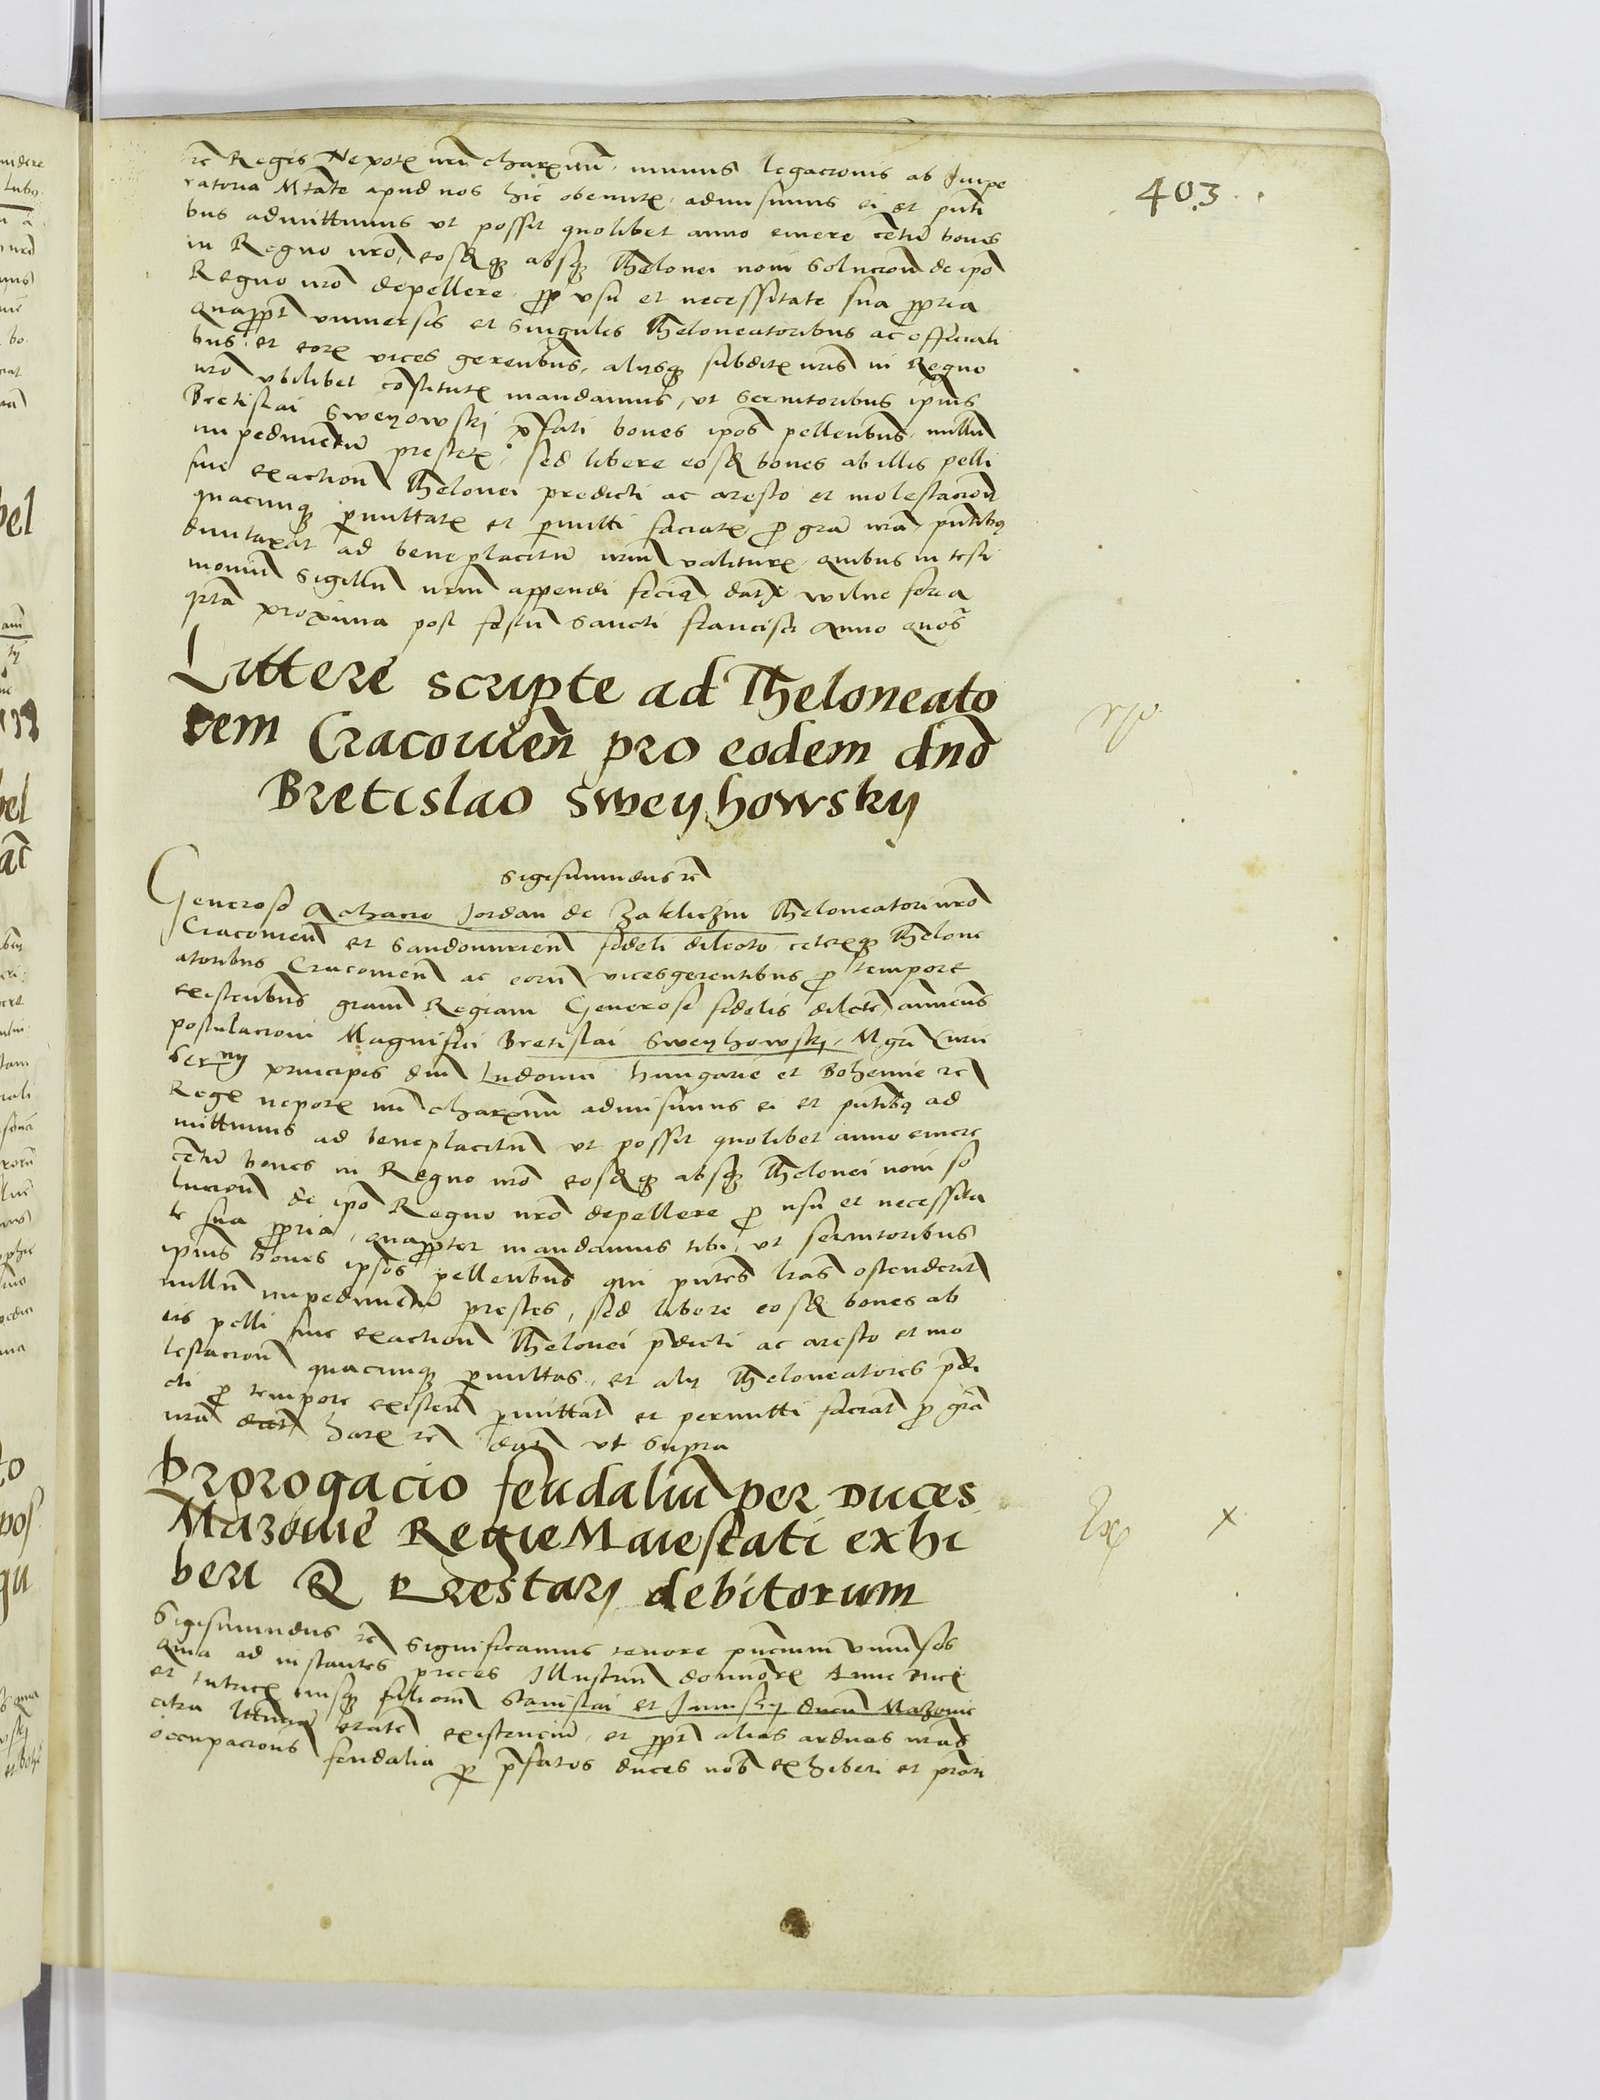 403
rē Regis Nepotꝭ nrī charꝭmi munus legacionis ab Impe
ratoria Mtate apud nos hic obeuntꝭ admisimus ei et pnti
bus admittimus ut possit quolibet anno emere centū boves
in Regno nrō, eosdꝫ absqꝫ Thelonei novi Solucione de ipō
Regno nrō depellere pro usu et necessitate sua propria
quapropt universis et Singulis Theloneatoribus ac officiali
bus et eorꝫ vices gerentibus, alysqꝫ subditꝭ nris in Regno
nrō ubilibet constitutꝭ mandamus, ut Servitoribus ipius
Bretislai Sweyowskj pfati boves ipos pellentibus nullū
impedimentū prestetꝭ, sed libere eosdꝫ boves ab illis pelli
sine exactione Thelonei predicti ac aresto et molestacione
quacunqꝫ permittatꝭ et permitti faciatꝭ pro gra nra, pntibꝫ
duntaxat ad beneplacitū nrm valiturꝭ quibus in testi
moniū Sigillū nrm appendi feciꝫ datꝭ wilne feria
qrta proxima post festū Sancti francisci Anno quoS
Littere scripte ad Theloneato
rem Cracovieñ pro eodem dño
Bretislao Sweyhowsky
Sigismundus rē
Generoso Achacio Jordan de Zakliczin Theloneatori nrō
Cracovien et Sandomirien fideli dilecto ceterꝭqꝫ Thelone
atoribus Cracovien ac eorū vicesgerentibus pro tempore
existentibus gram Regiam Generose fidelis dilecte annuens
postulacioni Magnifici Bretislai Sweyhowskj, Mgrī Curie
Serꝫmi principis dni Ludovici hungarie et Bohemie rē
Regꝭ nepotꝭ nrī charꝭmi admisimus ei et pntibꝫ ad
mittimus ad beneplacitū ut possit quolibet anno emere
centū boves in Regno nrō eosdꝫ absqꝫ Thelonei novi so
lucione de ipō Regno nrō depellere pro usu et necessita
te sua propria, quapropter mandamus tibi, ut servitoribus
ipius boves ipsos pellentibus qui pntes lras ostenderit
nullū impedimentū prestes, sed libere eosdꝫ boves ab
eis pelli sine exactione Thelonei pdicti ac aresto et mo
lestacione quacunqꝫ permittas, et aly Theloneatores pdi
cti pro tempore existen permittat et permitti faciat pro grā
nra datꝭ harꝫ rē datꝭ ut Supra
Prorogacio feudaliū per Duces
Mazovie Regie Maiestati exhi
beri & Prestarj debitorum
Sigismundus rē Significamus tenore pncium univsis
Quia ad instantes preces Illustriū dominorꝫ Anne ducis
et tutricꝭ eiusqꝫ filiorū Stanislai et Janusij ducū Mazovie
citra etate existenciū, et propt alias arduas nras
occupaciones feudalia per pfatos duces nob exhiberi et prestari